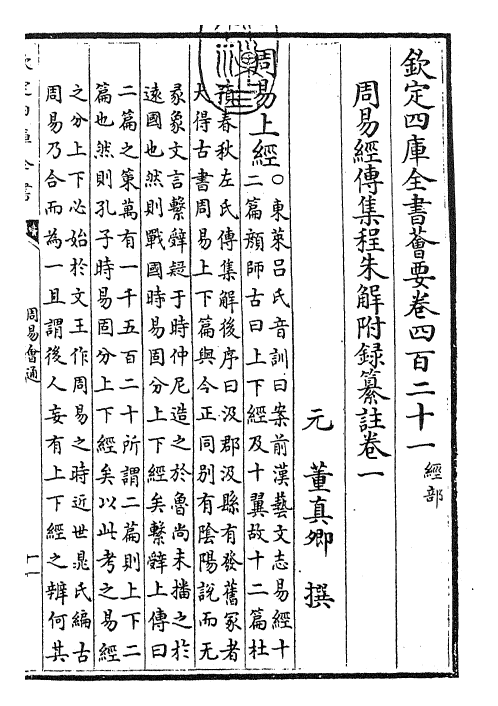 欽定四庫全書薈要卷四百二十一 經部
周易經傳集程朱解附録纂註卷一
元 董真卿 撰
周易上經
○東萊吕氏音訓曰案前漢藝文志易經十
二篇顔師古曰上下經及十翼故十二篇杜
預春秋左氏傳集解後序曰汲郡汲縣有發舊冢者
大得古書周易上下篇與今正同别有陰陽說而无
彖象文言繫辭疑于時仲尼造之於魯尚未播之於
逺國也然則戰國時易固分上下經矣繫辭上傳曰
二篇之策萬有一千五百二十所謂二篇則上下二
篇也然則孔子時易固分上下經矣以此考之易經
之分上下必始於文王作周易之時近世晁氏編古
周易乃合而為一且謂後人妄有上下經之辨何其
周易會通